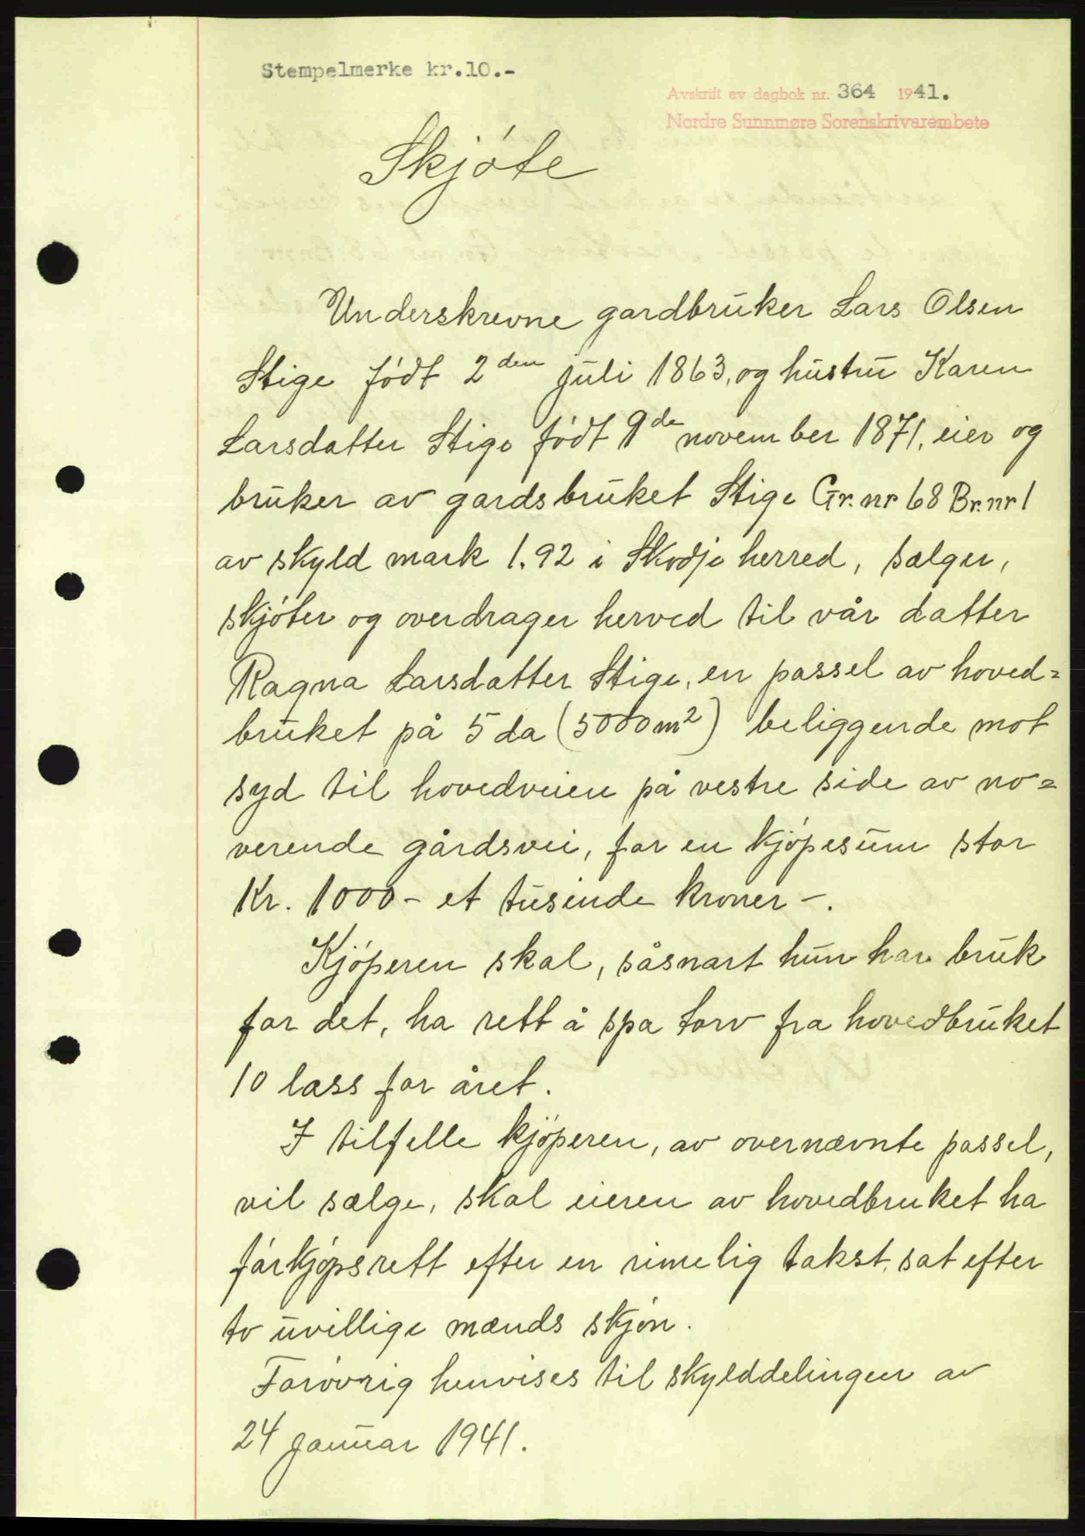 Stempelmerke kr.10.-
Avskrift av dagbok nr. 364 1941.
Nordre Sunnmøre Sorenskrivarembete
Skjøte
Underskrevne gardbruker Lars Olsen
Stige født 2den juli 1863, og hustru Karen
Larsdatter Stige født 9de november 1871, eier og
bruker av gardsbruket Stige Gr.nr 68 Br.nr 1
av skyld mark 1.92 i Skodje herred, sælger,
skjøter og overdrager herved til vår datter
Ragna Larsdatter Stige, en passel av hoved=
bruket på 5 da (5000 m2) beliggende mot
syd til hovedveien på vestre side av no=
verende gårdsvei, for en kjøpesum stor
Kr. 1000 - et tusinde kroner -.
Kjøperen skal, såsnart hun har bruk
for det, ha rett å spa torv fra hovedbruket
10 lass for året.
I tilfelle kjøperen, av overnævnte passel,
vil sælge, skal eieren av hovedbruket ha
førkjøpsrett efter en rimelig takst, sat efter
to uvillige mænds skjøn.
Forøvrig henvises til skylddelingen av
24 januar 1941.